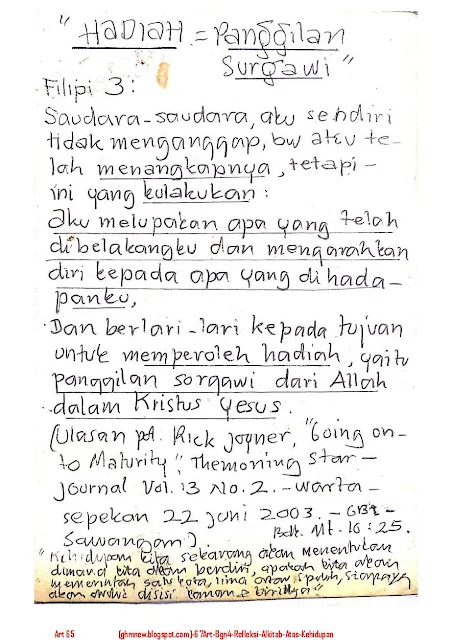 "HADIAH = Panggilan
Surgawi"
Filipi 3:
Saudara-saudara, aku sendiri
tidak menganggap, bw aku te-
lah menangkapnya, tetapi -
ini yang kulakukan:
aku melupakan apa yang telah
dibelakangku dan mengarahkan
diri kepada apa yang dihada-
panku,
Dan berlari-lari kepada tujuan
untuk memperoleh hadiah, yaitu
panggilan sorgawi dari Allah
dalam Kristus Yesus.
(Ulasan pd. Rick Joyner, "Going on-
to Maturity", Themorning Star -
Journal Vol. 13 No. 2. - warta -
sepekan 22 Juni 2003. - GBI -
Sawangan). Bdk. Mt. 16:25.
"Kehidupan kita sekarang akan menentukan
dimana kita akan berdiri, apakah kita akan
memerintah satu kota, lima atau sepuluh, siapa yg
akan duduk disisi
Art 65 (ghmnew.blogspot.com)-67Art-Bgn4-Refleksi-Alkitab-Atas-Kehidupan